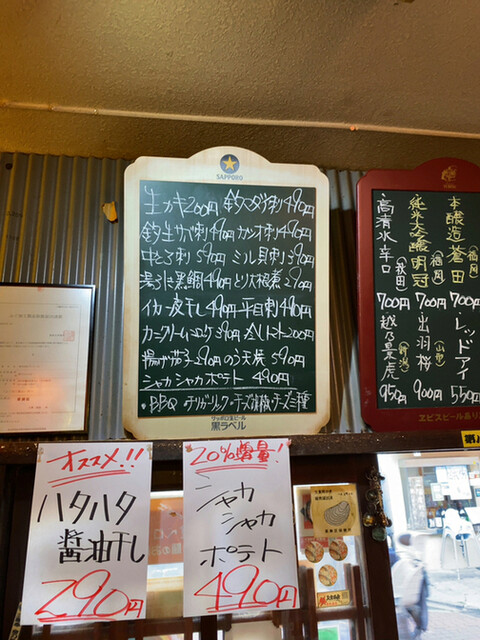 SAPPORO
生カキ200円 釣アジ刺490円
釣生サバ刺490円 カツオ刺490円
中とろ刺590円 ミル貝刺390円
湯引き黒鯛490円 とり大根煮290円
イカ一夜干し490円 平目刺490円
カニクリームコロッケ390円 冷しトマト200円
揚げ茄子290円 のり天袋590円
シャカシャカポテト 490円
・BBQ・チリガーリック・チーズ・胡椒・チーズ三種
サッポロ生ビール
黒ラベル
本醸造 蒼田(福岡)
700円
純米大吟醸 明冠(福岡)
700円
高清水 辛口(秋田)
700円
レッドアイ
550円
出羽桜(山形)
900円
越乃景虎(新潟)
950円
ヱビスビールあり
オススメ!!
ハタハタ
醤油干し
290円
20%増量!
シャカ
シャカ
ポテト
490円